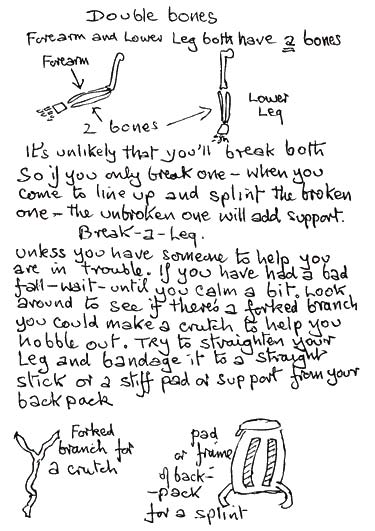 Double bones
Forearm and Lower Leg both have 2 bones
Forearm
Lower
Leg
2 bones
It's unlikely that you'll break both
So if you only break one - when you
come to line up and splint the broken
one - the unbroken one will add support.
Break-a-Leg.
unless you have someone to help you
are in trouble. If you have had a bad
fall-wait-until you calm a bit. Look
around to see if there's a forked branch
you could make a crutch to help you
hobble out. Try to straighten your
Leg and bandage it to a straight
stick or a stiff pad or support from your
back pack
Forked
branch for
a crutch
pad
or frame
of back-
-pack
for a splint